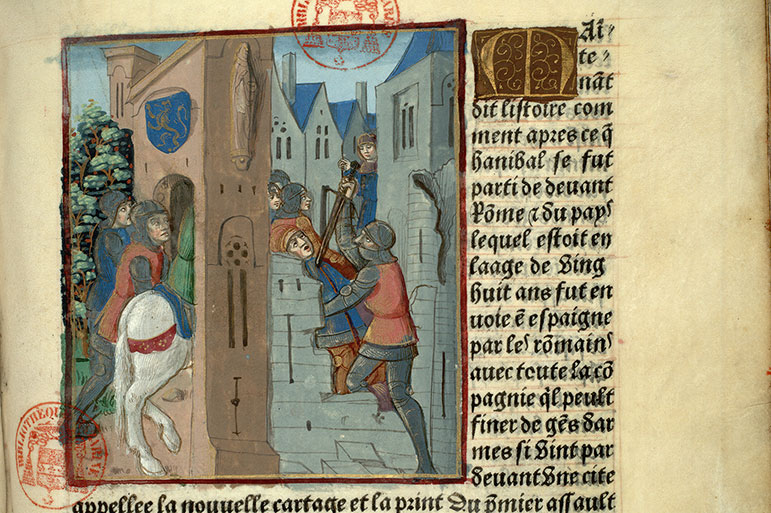 Mai(n)
te
nāt
dit listoire com
ment apres ce q̄
hanibal se fut
parti de deuant
Rōme ⁊ du pays
lequel estoit en
laage de Ving
huit ans fut en
uoie ē espaigne
par les rōmains
auec toute la cō
pagnie q̄l peult
finer de gēs dar
mes si Vint par
deuant Vne cite
appellee la nouuelle cartage et la print Du p̄mier assault